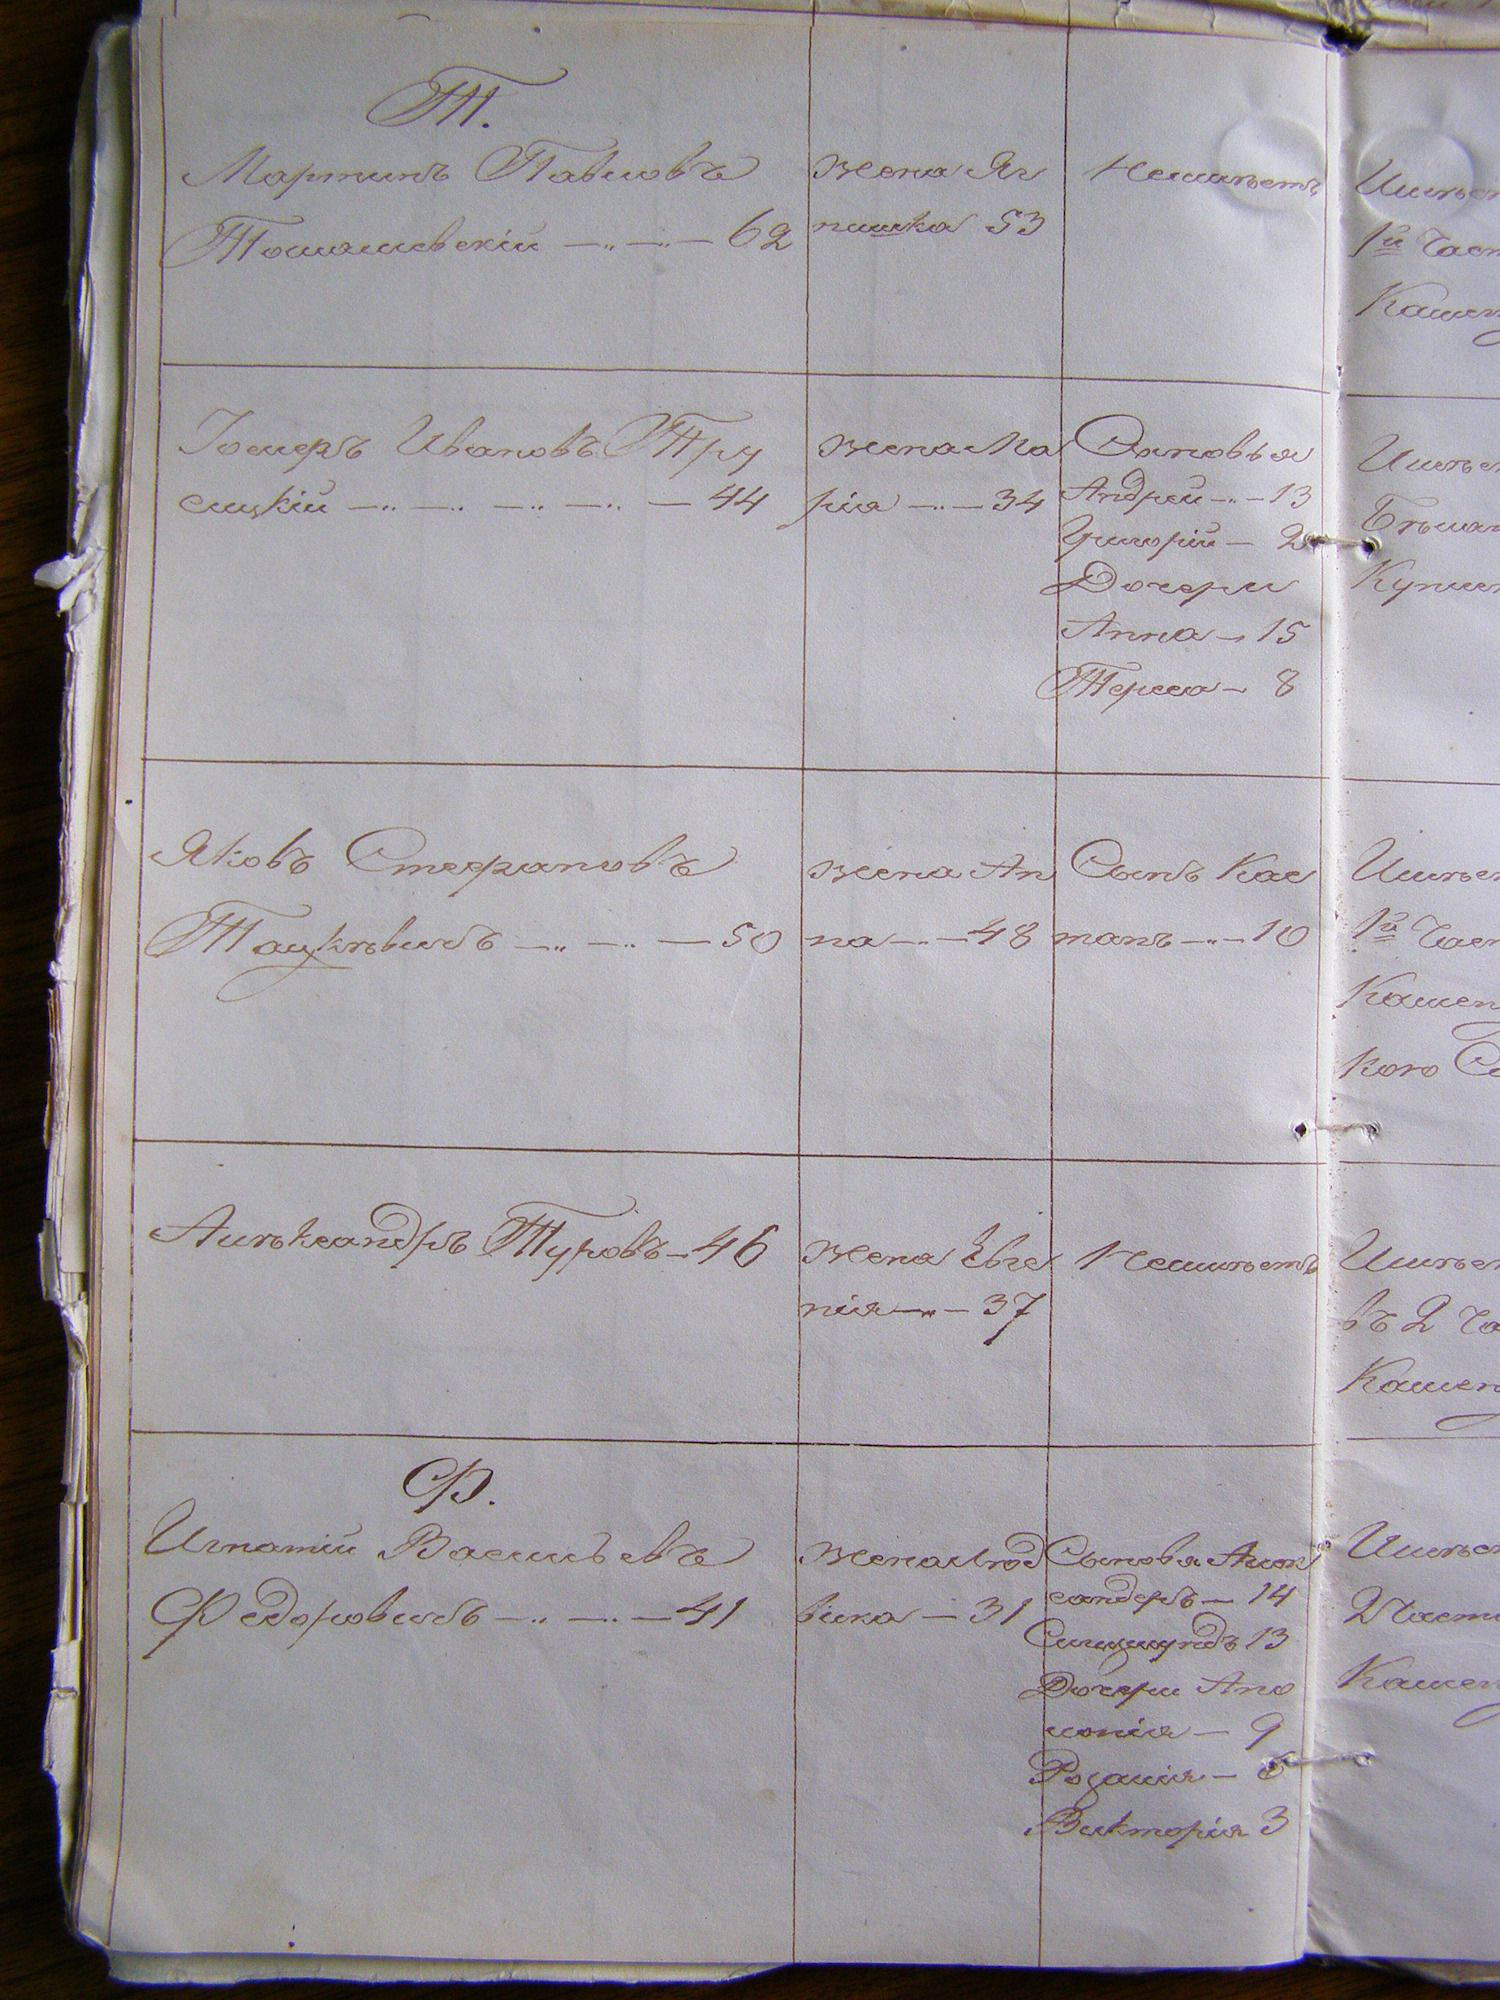 Т.
Мартинъ Павловъ
Томашевскій — 62
жена Яг
нишка 53
Неимѣетъ
Имѣет
1й Част
Камен
Іосифъ Ивановъ Тру
сицкій — 44
жена Ма
рія — 34
Сыновья
Андрей — 13
Григорій — 2
Дочери
Анна — 15
Тереса — 8
Имѣет
Яковъ Стефановъ
Тацкѣвичъ — 50
жена Ан
на — 48
Сынъ Кае
танъ — 10
Имѣет
1й Част
Камен
кого
Алѣксандръ Туровъ — 46
жена Евге
нія — 37
Неимѣетъ
Имѣет
въ 2 Ча
Камен
Ф.
Игнатій Васильевъ
Федоровичъ — 41
жена Люд
вика — 31
Сыновья Алек
сандеръ — 14
Сигизмундъ 13
Дочери Апо
лонія — 9
Розалія — 6
Викторія 3
Имѣет
2 Части
Камен